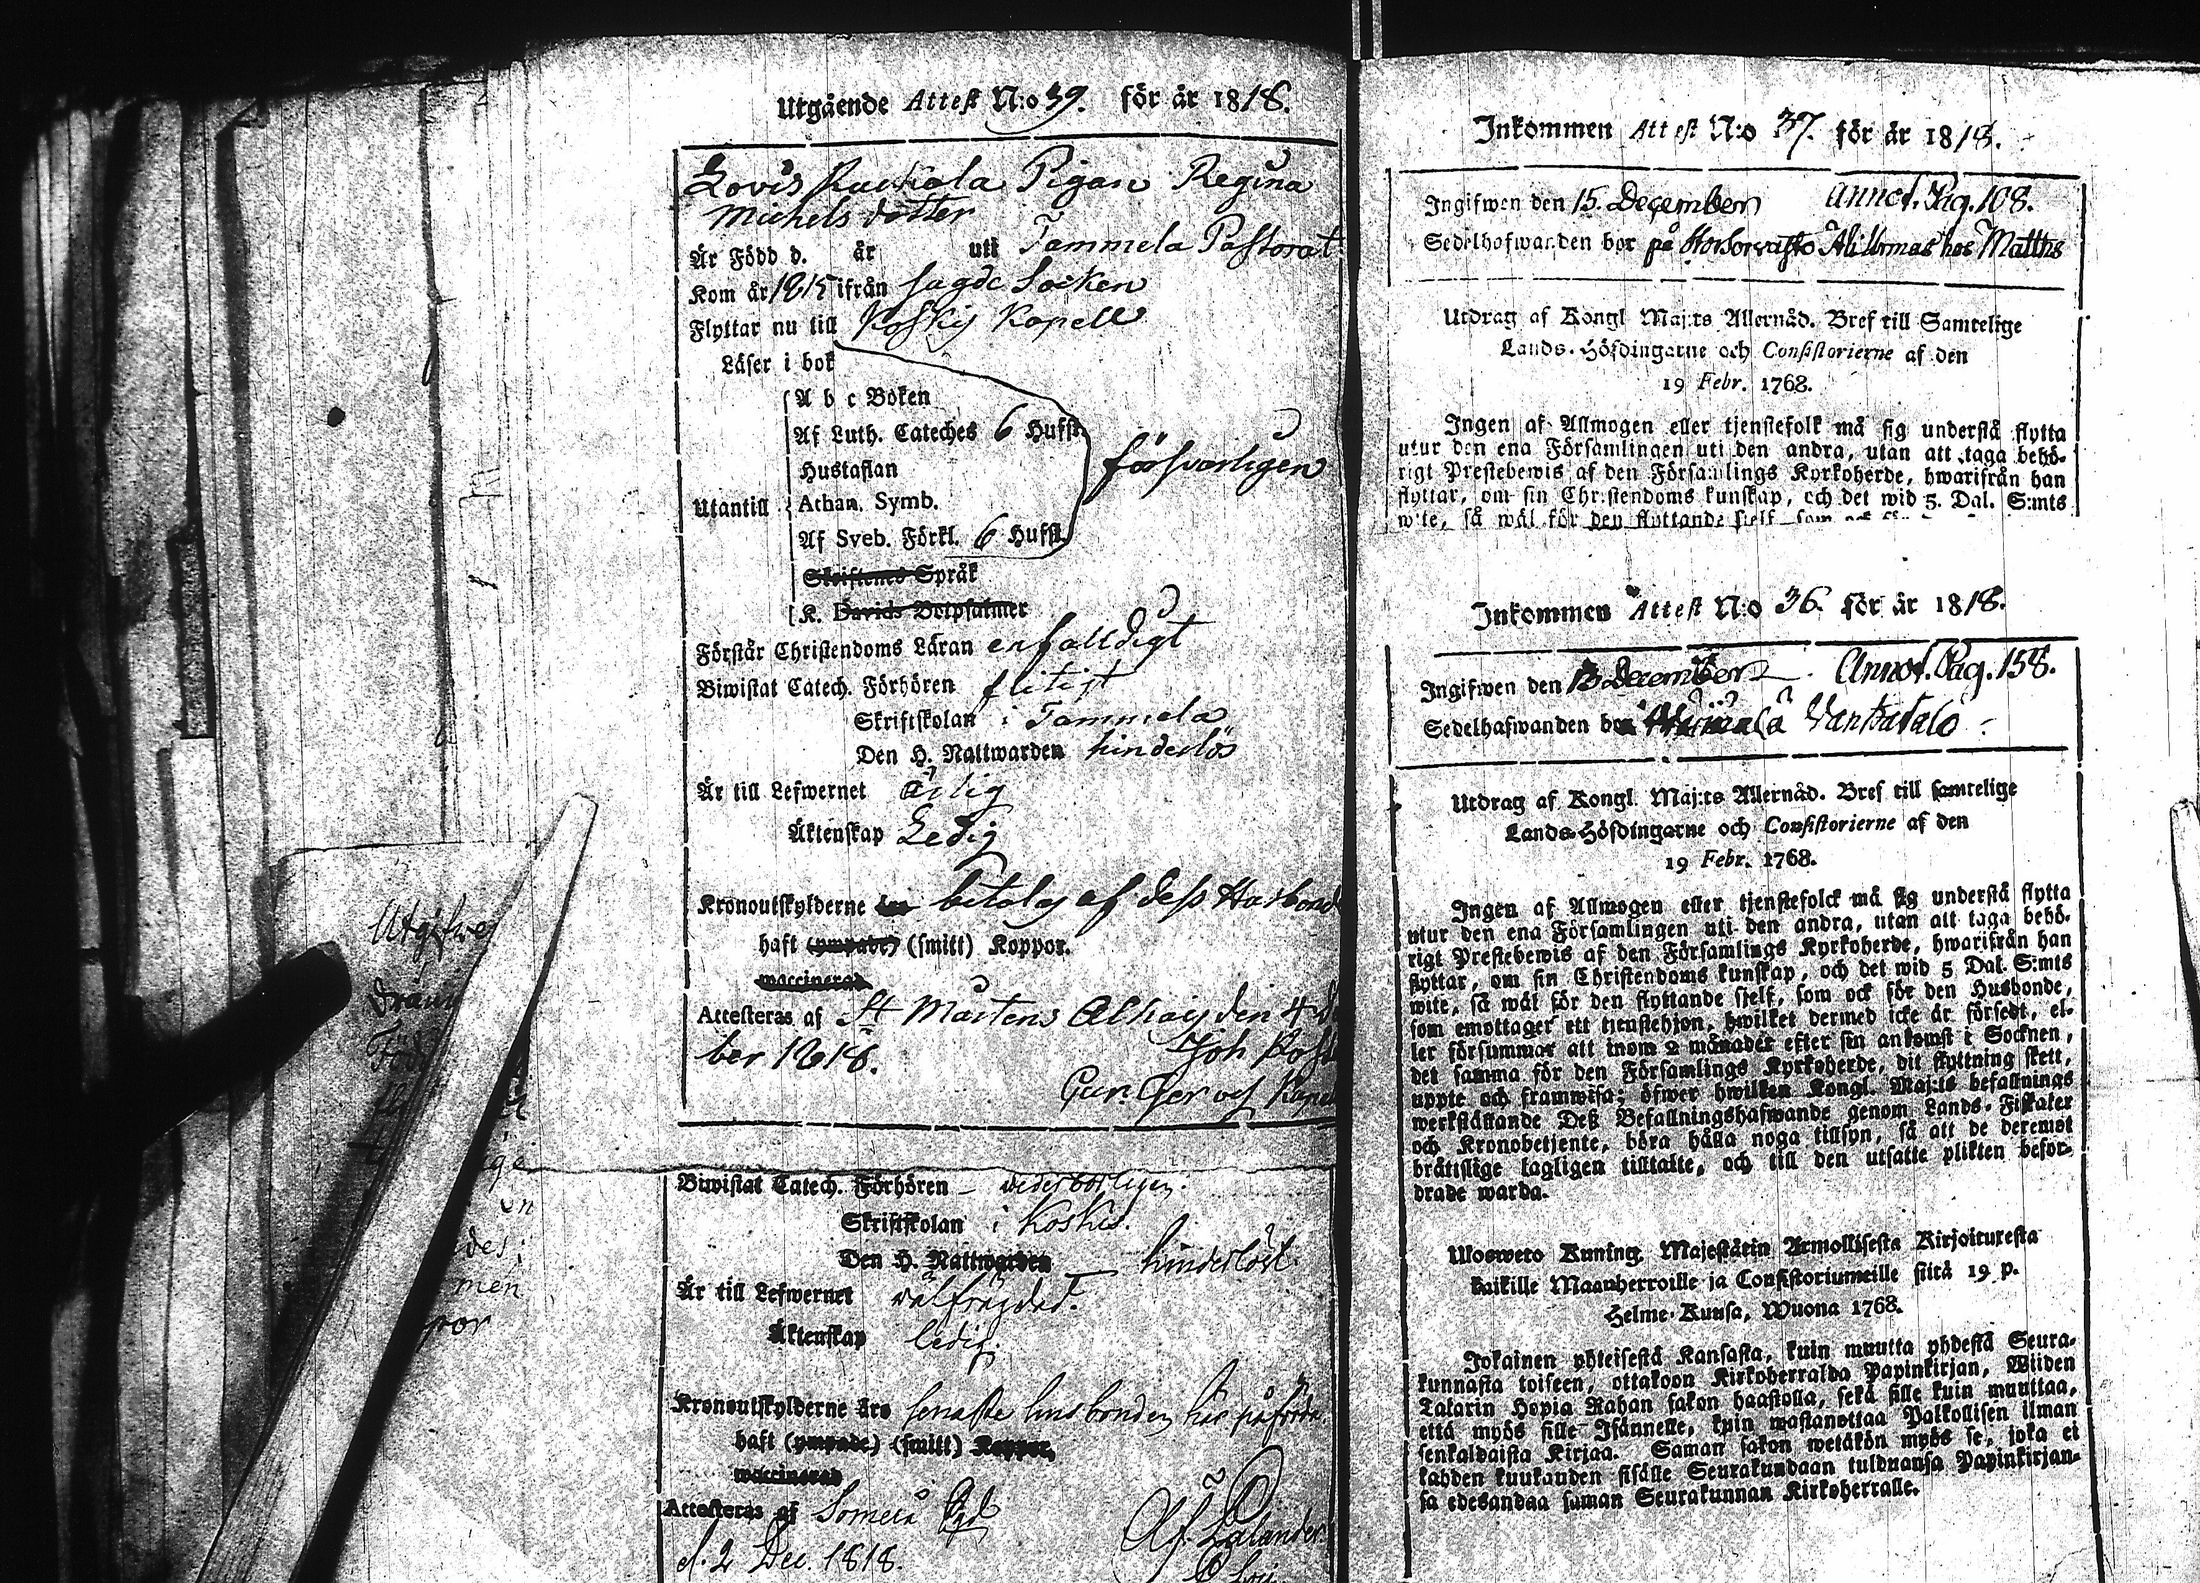 Utgående Attest N:o 39. för år 1818.
Lovis Ruckola Pigan Regina
Michelsdotter
Är Född d. år uti Tammela Pastorat
Kom år 1815 ifrån sagde Socken
Flyttar nu till Koskis Kapell
Läser i bok
A b c Boken
Af Luth. Cateches 6 Hufst.
Hustaflan
försvarligen
Utantill Athan. Symb.
Af Sveb. Förkl. 6 Hufst.
Skriftenes Språk
K. Davids Botpsalmer
Förstår Christendoms Läran enfalldigt
Biwistat Catech. Förhören flitigt
Skriftskolan i Tammela
Den H. Nattwarden hinderlös
Är till Lefwernet Ärlig
Äktenskap Ledig
Kronoutskylderne betalas af dess Husbonde
haft (ympade) (smitt) Koppor.
waccinerad
Attesteras af St Mårtens den 4 De
ber 1818. Joh
Biwistat Catech. Förhören – wederbörligen.
Skriftskolan i Koskis.
Den H. Nattwarden – hinderlöst.
Är till Lefwernet välfrägdad.
Äktenskap ledig.
Kronoutskylderne äro senaste husbonden har
haft (ympade) (smitt) Koppor,
waccinerad
Attesteras af Somero
d. 2 Dec. 1818. Lilander
Utgifwe
Född
ige
en
des;
men
por
Inkommen Attest N:o 37. för år 1818.
Ingifwen den 15. December Annot. Pag. 108.
Sedelhafwanden bor på hos Matths
Utdrag af Kongl Maj:ts Allernåd. Bref till Samtelige
Lands-Höfdingarne och Consistorierne af den
19 Febr. 1768.
Ingen af Allmogen eller tjenstefolk må sig understå flytta
utur den ena Församlingen uti den andra, utan att taga behö-
rigt Prestebewis af den Församlings Kyrkoherde, hwarifrån han
flyttar, om sin Christendoms kunskap, och det wid 5. Dal. S:mts
wite, så wäl för den flyttande sjelf som ock för
Inkommen Attest N:o 36. för år 1818.
Ingifwen den 13 December. Annot. Pag. 158.
Sedelhafwanden bor Vantatalo
Utdrag af Kongl. Maj:ts Allernåd. Bref till samtelige
Lands-Höfdingarne och Consistorierne af den
19 Febr. 1768.
Ingen af Allmogen eller tjenstefolck må sig understå flytta
utur den ena Församlingen uti den andra, utan att taga behö-
rigt Prestebewis af den Församlings Kyrkoherde, hwarifrån han
flyttar, om sin Christendoms kunskap, och det wid 5 Dal. S:mts
wite, så wäl för den flyttande sjelf, som ock för den Husbonde,
som emottager ett tjenstehjon, hwilket dermed icke är försedt, el-
ler försummar att inom 2 månader efter sin ankomst i Socknen,
det samma för den Församlings Kyrkoherde, dit flyttning skett,
uppte och framwisa; öfwer hwilken Kongl. Maj:ts befallnings
werkställande Deß Befallningshafwande genom Lands-Fiskaler
och Kronobetjente, böra hålla noga tillsyn, så att de deremot
bråttslige lagligen tilltalte, och till den utsatte plikten befor-
drade warda.
Ulosweto Kuning. Majestätin Armollisesta Kirjoituxesta
kaikille Maanherroille ja Consistoriumeille siitä 19 p.
Helme-Kuusa, Wuona 1768.
Jokainen yhteisestä Kansasta, kuin muutta yhdestä Seura-
kunnasta toiseen, ottakoon Kirkoherralda Papinkirjan, Wiiden
Talarin Hopia Rahan sakon haastolla, sekä sille kuin muuttaa,
että myös sille Isännelle, kuin wastanottaa Palkollisen ilman
senkaldaista Kirjaa. Saman sakon wetäkön myös se, joka ei
kahden kuukauden sisälle Seurakundaan tulduansa Papinkirjan-
sa edesandaa saman Seurakunnan Kirkoherralle.